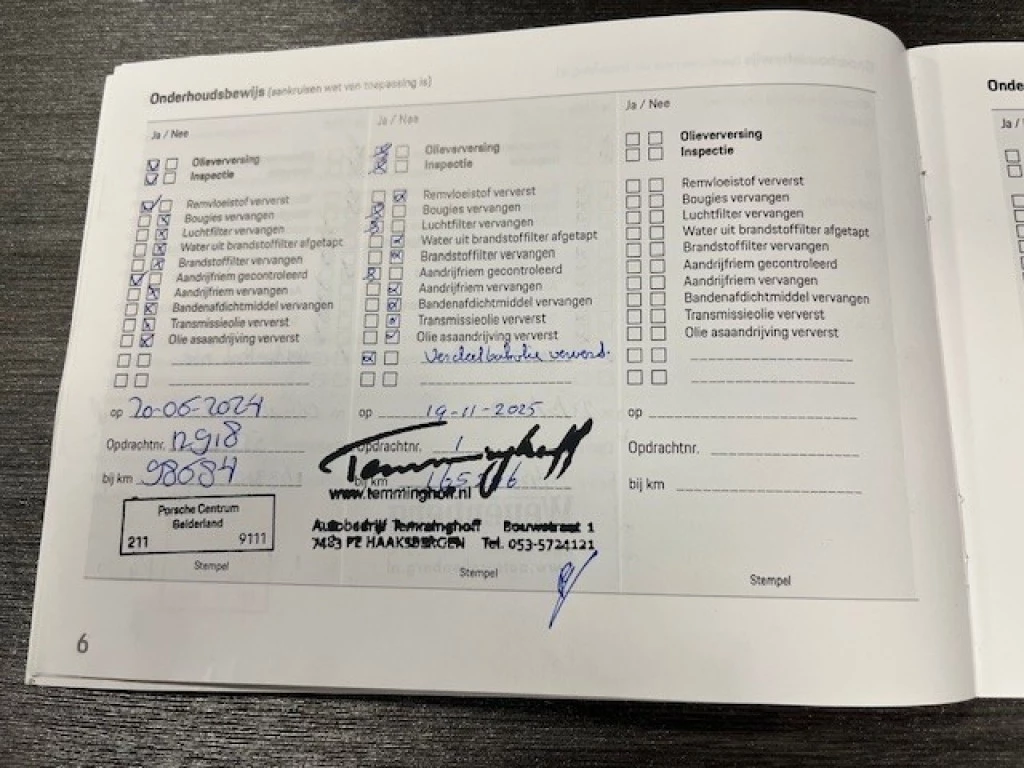 Onderhoudsbewijs (aankruisen wat van toepassing is)
Ja / Nee
Olieverversing
Inspectie
Remvloeistof ververst
Bougies vervangen
Luchtfilter vervangen
Water uit brandstoffilter afgetapt
Brandstoffilter vervangen
Aandrijfriem gecontroleerd
Aandrijfriem vervangen
Bandenafdichtmiddel vervangen
Transmissieolie ververst
Olie asaandrijving ververst
op 20-06-2024
Opdrachtnr. 12918
bij km 98684
Porsche Centrum
Gelderland
211 9111
Stempel
Ja / Nee
Olieverversing
Inspectie
Remvloeistof ververst
Bougies vervangen
Luchtfilter vervangen
Water uit brandstoffilter afgetapt
Brandstoffilter vervangen
Aandrijfriem gecontroleerd
Aandrijfriem vervangen
Bandenafdichtmiddel vervangen
Transmissieolie ververst
Olie asaandrijving ververst
op 19-11-2025
Opdrachtnr. /
bij km
Temminghoff
www.temminghoff.nl
Autobedrijf Temminghoff Bouwstraat 1
7483 PE HAAKSBERGEN Tel. 053-5724121
Stempel
Ja / Nee
Olieverversing
Inspectie
Remvloeistof ververst
Bougies vervangen
Luchtfilter vervangen
Water uit brandstoffilter afgetapt
Brandstoffilter vervangen
Aandrijfriem gecontroleerd
Aandrijfriem vervangen
Bandenafdichtmiddel vervangen
Transmissieolie ververst
Olie asaandrijving ververst
op
Opdrachtnr.
bij km
Stempel
6
Onde
Ja /